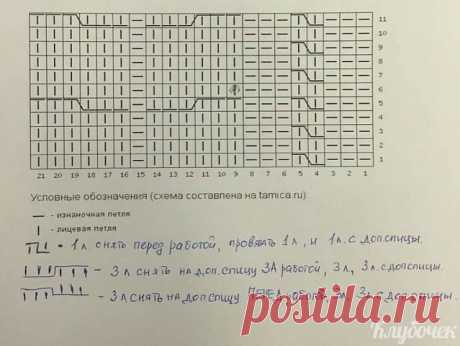 11
10
9
8
7
6
5
4
3
2
1
21 20 19 18 17 16 15 14 13 12 11 10 9 8 7 6 5 4 3 2 1
Условные обозначения (схема составлена на tamica.ru):
— - изнаночная петля
I - лицевая петля
- 1л снять перед работой, провязать 1л, и 1л. с доп.спицы.
- 3л снять на доп.спицу ЗА работой, 3л, 3л. с доп.спицы.
- 3л снять на доп.спицу ПЕРЕД 3л с доп.спицы.
postila.ru
Клубочек